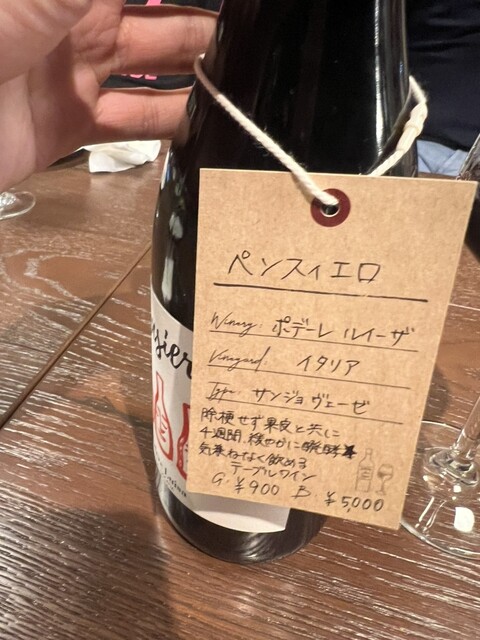 ペンスィエロ
Winery: ポデーレ ルイーザ
Vineyard イタリア
Type: サンジョヴェーゼ
除梗せず果皮と共に
4週間、穏やかに醗酵
気兼ねなく飲める
テーブルワイン
G. ¥900 B ¥5,000